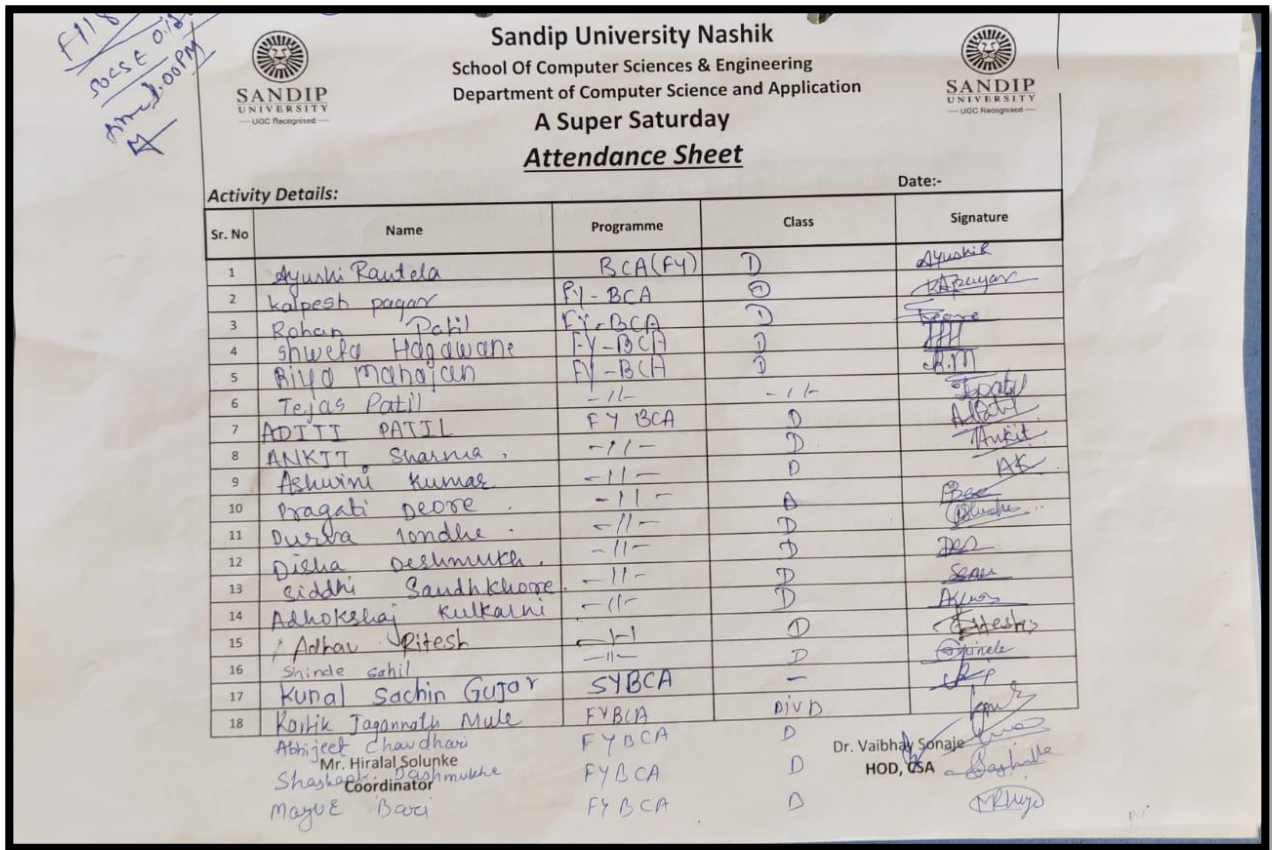 F118
SOCSE
1.00PM
SANDIP
UNIVERSITY
UGC Recognised
Sandip University Nashik
School Of Computer Sciences & Engineering
Department of Computer Science and Application
A Super Saturday
Attendance Sheet
SANDIP
UNIVERSITY
UGC Recognised
Activity Details: Date:-
Sr. No Name Programme Class Signature
1 Ayushi Rautela BCA(FY) D AyushiR
2 Kalpesh pagar FY-BCA D KApagar
3 Rohan Patil FY-BCA D
4 Shweta Hagawane FY-BCA D
5 Riya Mahajan FY-BCA D R.M
6 Tejas Patil -11- -11-
7 ADITI PATIL FY BCA D
8 ANKIT Sharma . -11- D Ankit
9 Ashwini Kumar -11- D AK
10 Pragati Deore . -11- D
11 Durva londhe . -11- D
12 Disha Deshmukh . -11- D Des
13 Siddhi Sandhkhore . -11- D
14 Adhokshaj Kulkarni -11- D
15 Adhav Ritesh -11- D Ritesh
16 Shinde sahil -11- D
17 Kunal Sachin Gujar SYBCA -
18 Kartik Jagannath Mule FYBCA DIV D
Abhijeet Chaudhari FYBCA D
Mr. Hiralal Solunke Dr. Vaibhav Sonaje
Shashank Dashmukhe FYBCA D
Coordinator HOD, CSA
Bari FYBCA D